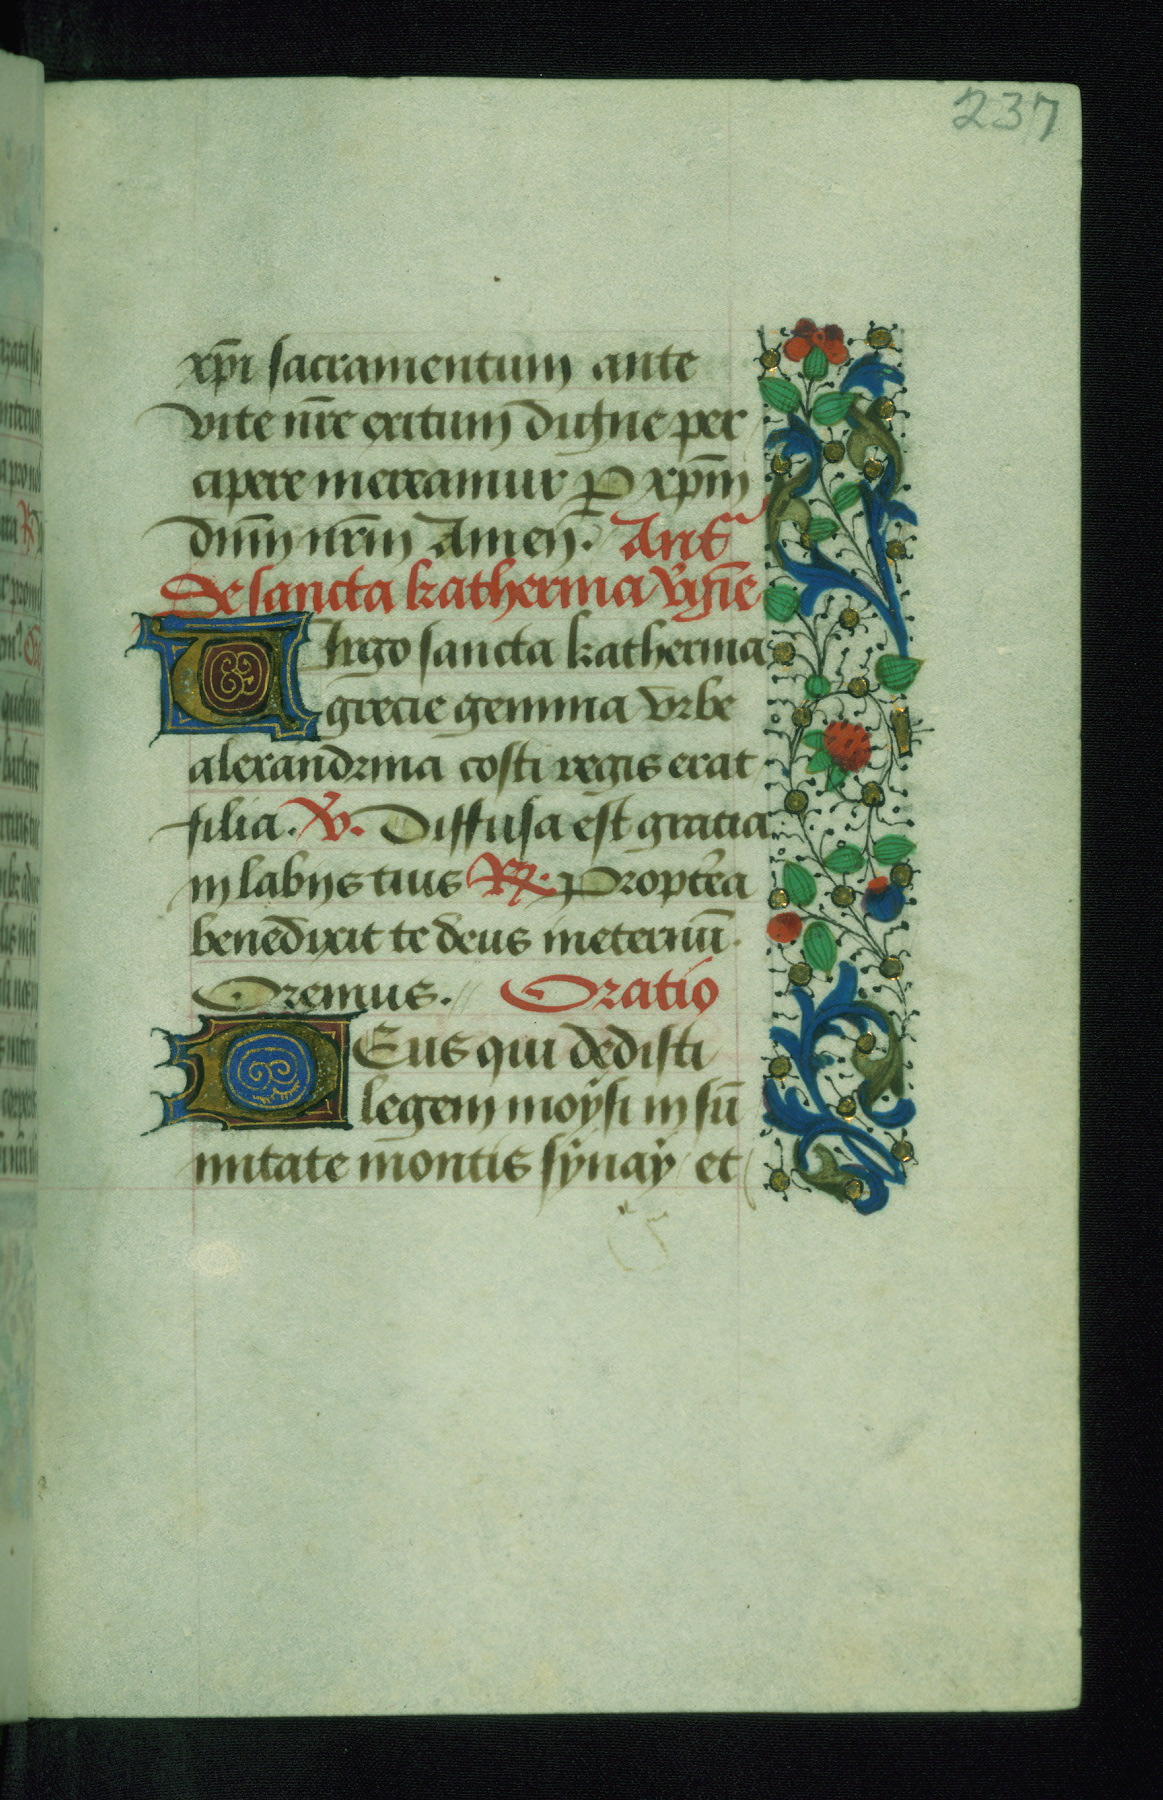 237
xp̄i sacramentum ante
vite nr̄e exitum digne per
cipere mereamur P xp̄m
dn̄m nr̄m Amen. Ant
De sancta katherina v̄gīe
VIrgo sancta katherina
grecie gemma vrbe
alexandrina costi regis erat
filia. V. Diffusa est gratia
in labijs tuis R. Propt̄ea
benedixit te deus ineternū.
Oremus. Oratio
DEus qui dedisti
legem moysi in sū
mitate montis synay et